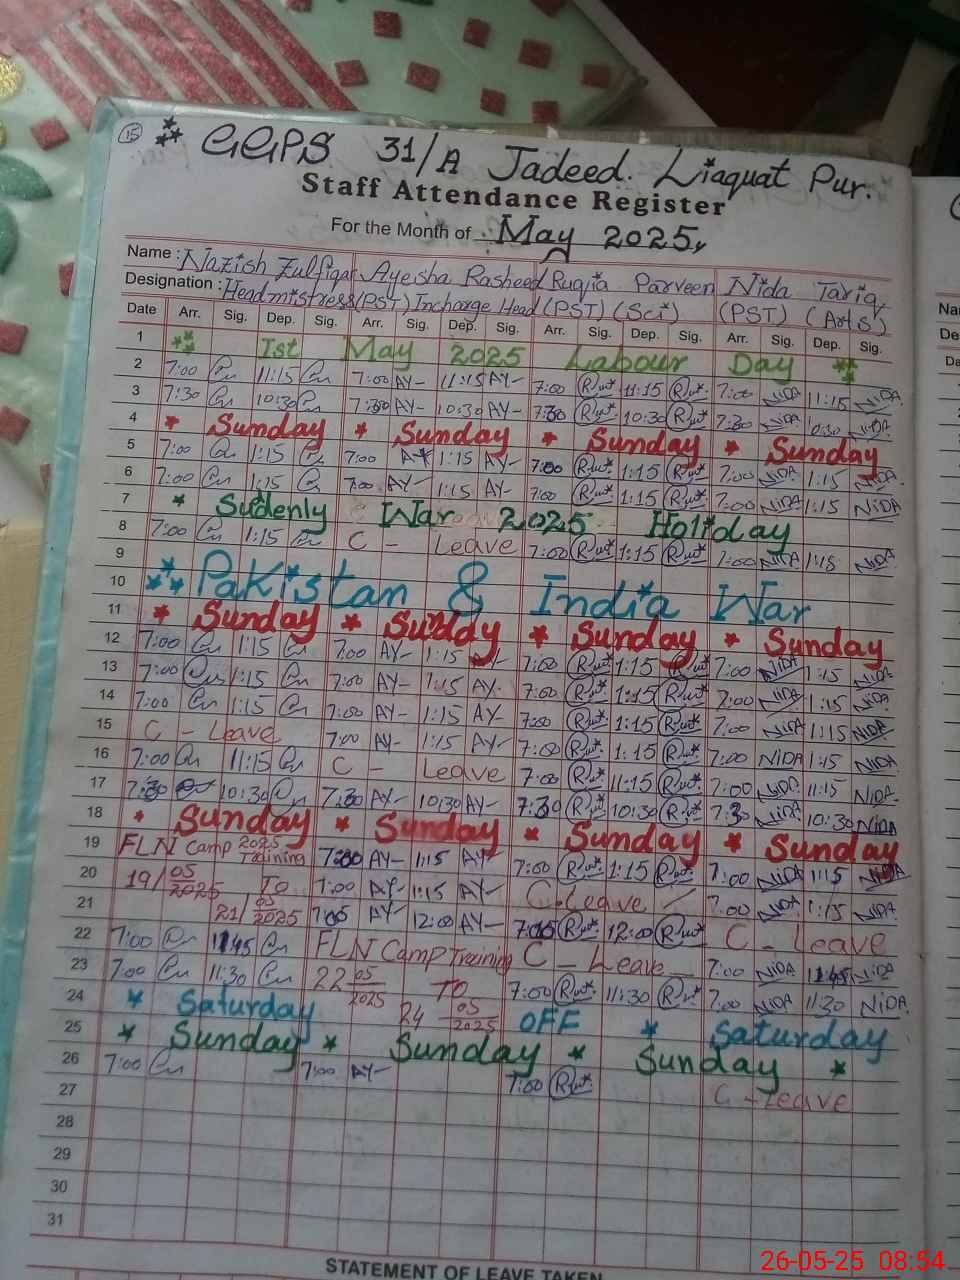 15
GGPS 31/A Jadeed. Liaquat Pur.
Staff Attendance Register
For the Month of May 2025,
Name : Nazish Zulfiqar Ayesha Rasheed Ruqjia Parveen Nida Tariq
Designation : Headmistress (PST) Incharge Head (PST) (Sci) (PST) (Arts)
Date Arr. Sig. Dep. Sig. Arr. Sig. Dep. Sig. Arr. Sig. Dep. Sig. Arr. Sig. Dep. Sig.
1 Ist May 2025 Labour Day
2 7:00 11:15 7:00 AY 11:15 AY 7:00 11:15 7:00 NIDA 11:15 NIDA
3 7:30 10:30 7:30 AY 10:30 AY 7:30 10:30 7:30 NIDA 10:30 NIDA
4 Sunday Sunday Sunday Sunday
5 7:00 1:15 7:00 AY 1:15 AY 7:00 1:15 7:00 NIDA 1:15 NIDA
6 7:00 1:15 7:00 AY 1:15 AY 7:00 1:15 7:00 NIDA 1:15 NIDA
7 Sudenly War 2025 Holiday
8 7:00 1:15 C - Leave 7:00 1:15 7:00 NIDA 1:15 NIDA
9
10 Pakistan & India War
11 Sunday Sunday Sunday Sunday
12 7:00 1:15 7:00 AY 1:15 AY 7:00 1:15 7:00 NIDA 1:15 NIDA
13 7:00 1:15 7:00 AY 1:15 AY 7:00 1:15 7:00 NIDA 1:15 NIDA
14 7:00 1:15 7:00 AY 1:15 AY 7:00 1:15 7:00 NIDA 1:15 NIDA
15 C - Leave 7:00 AY 1:15 AY 7:00 1:15 7:00 NIDA 1:15 NIDA
16 7:00 11:15 C - Leave 7:00 11:15 7:00 NIDA 11:15 NIDA
17 7:30 10:30 7:30 AY 10:30 AY 7:30 10:30 7:30 NIDA 10:30 NIDA
18 Sunday Sunday Sunday Sunday
19 FLN Camp 2025 Training 7:00 AY 1:15 AY 7:00 1:15 7:00 NIDA 1:15 NIDA
20 19/05/2025 TO 7:00 AY 1:15 AY C-Leave 7:00 NIDA 1:15 NIDA
21 21/05/2025 7:05 AY 12:00 AY 7:05 12:00 C - Leave
22 7:00 11:45 FLN Camp Training C - Leave 7:00 NIDA 11:45 NIDA
23 7:00 11:30 22 05/2025 TO 7:00 11:30 7:00 NIDA 11:30 NIDA
24 Saturday 24 05/2025 OFF Saturday
25 Sunday Sunday Sunday
26 7:00 7:00 AY 7:00 C - Leave
27
28
29
30
31
STATEMENT OF LEAVE TAKEN
26-05-25 08:54